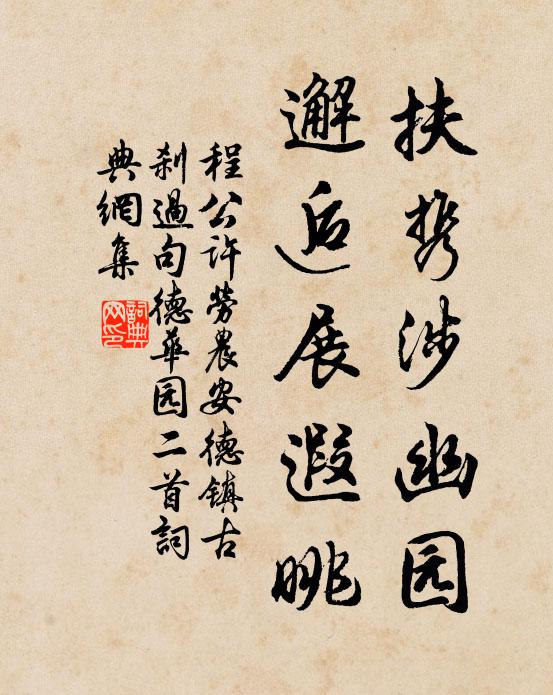 扶携涉幽园
邂逅展遐眺
程公许劳農安德镇古
刹過句德華园二首詞
典網集
詞典网印